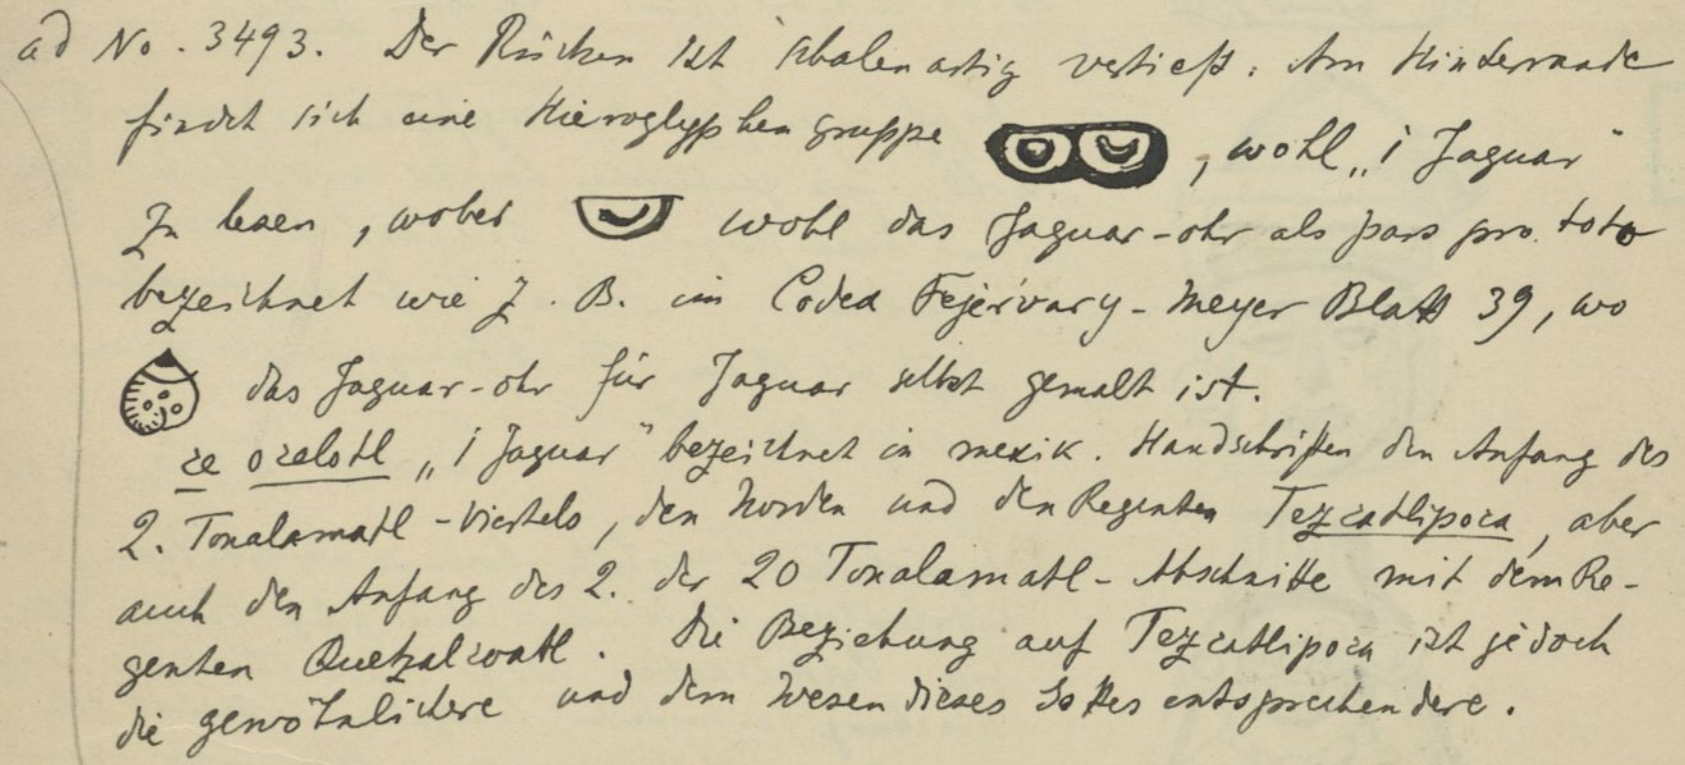 ad No. 3493. Der Rücken ist schalenartig vertieft. Am Hinterrande
findet sich eine Hieroglyphengruppe , wohl „1 Jaguar"
zu lesen, wobei wohl das Jaguar-ohr als pars pro toto
bezeichnet wie z. B. im Codex Fejérváry-Meyer Blatt 39, wo
das Jaguar-ohr für Jaguar selbst gemalt ist.
ce ocelotl „1 Jaguar" bezeichnet in mexik. Handschriften den Anfang des
2. Tonalamatl-Viertels, den Norden und den Regenten Tezcatlipoca, aber
auch den Anfang des 2. der 20 Tonalamatl-Abschnitte mit dem Re-
genten Quetzalcoatl. Die Beziehung auf Tezcatlipoca ist jedoch
die gewöhnlichere und dem Wesen dieses Gottes entsprechendere.